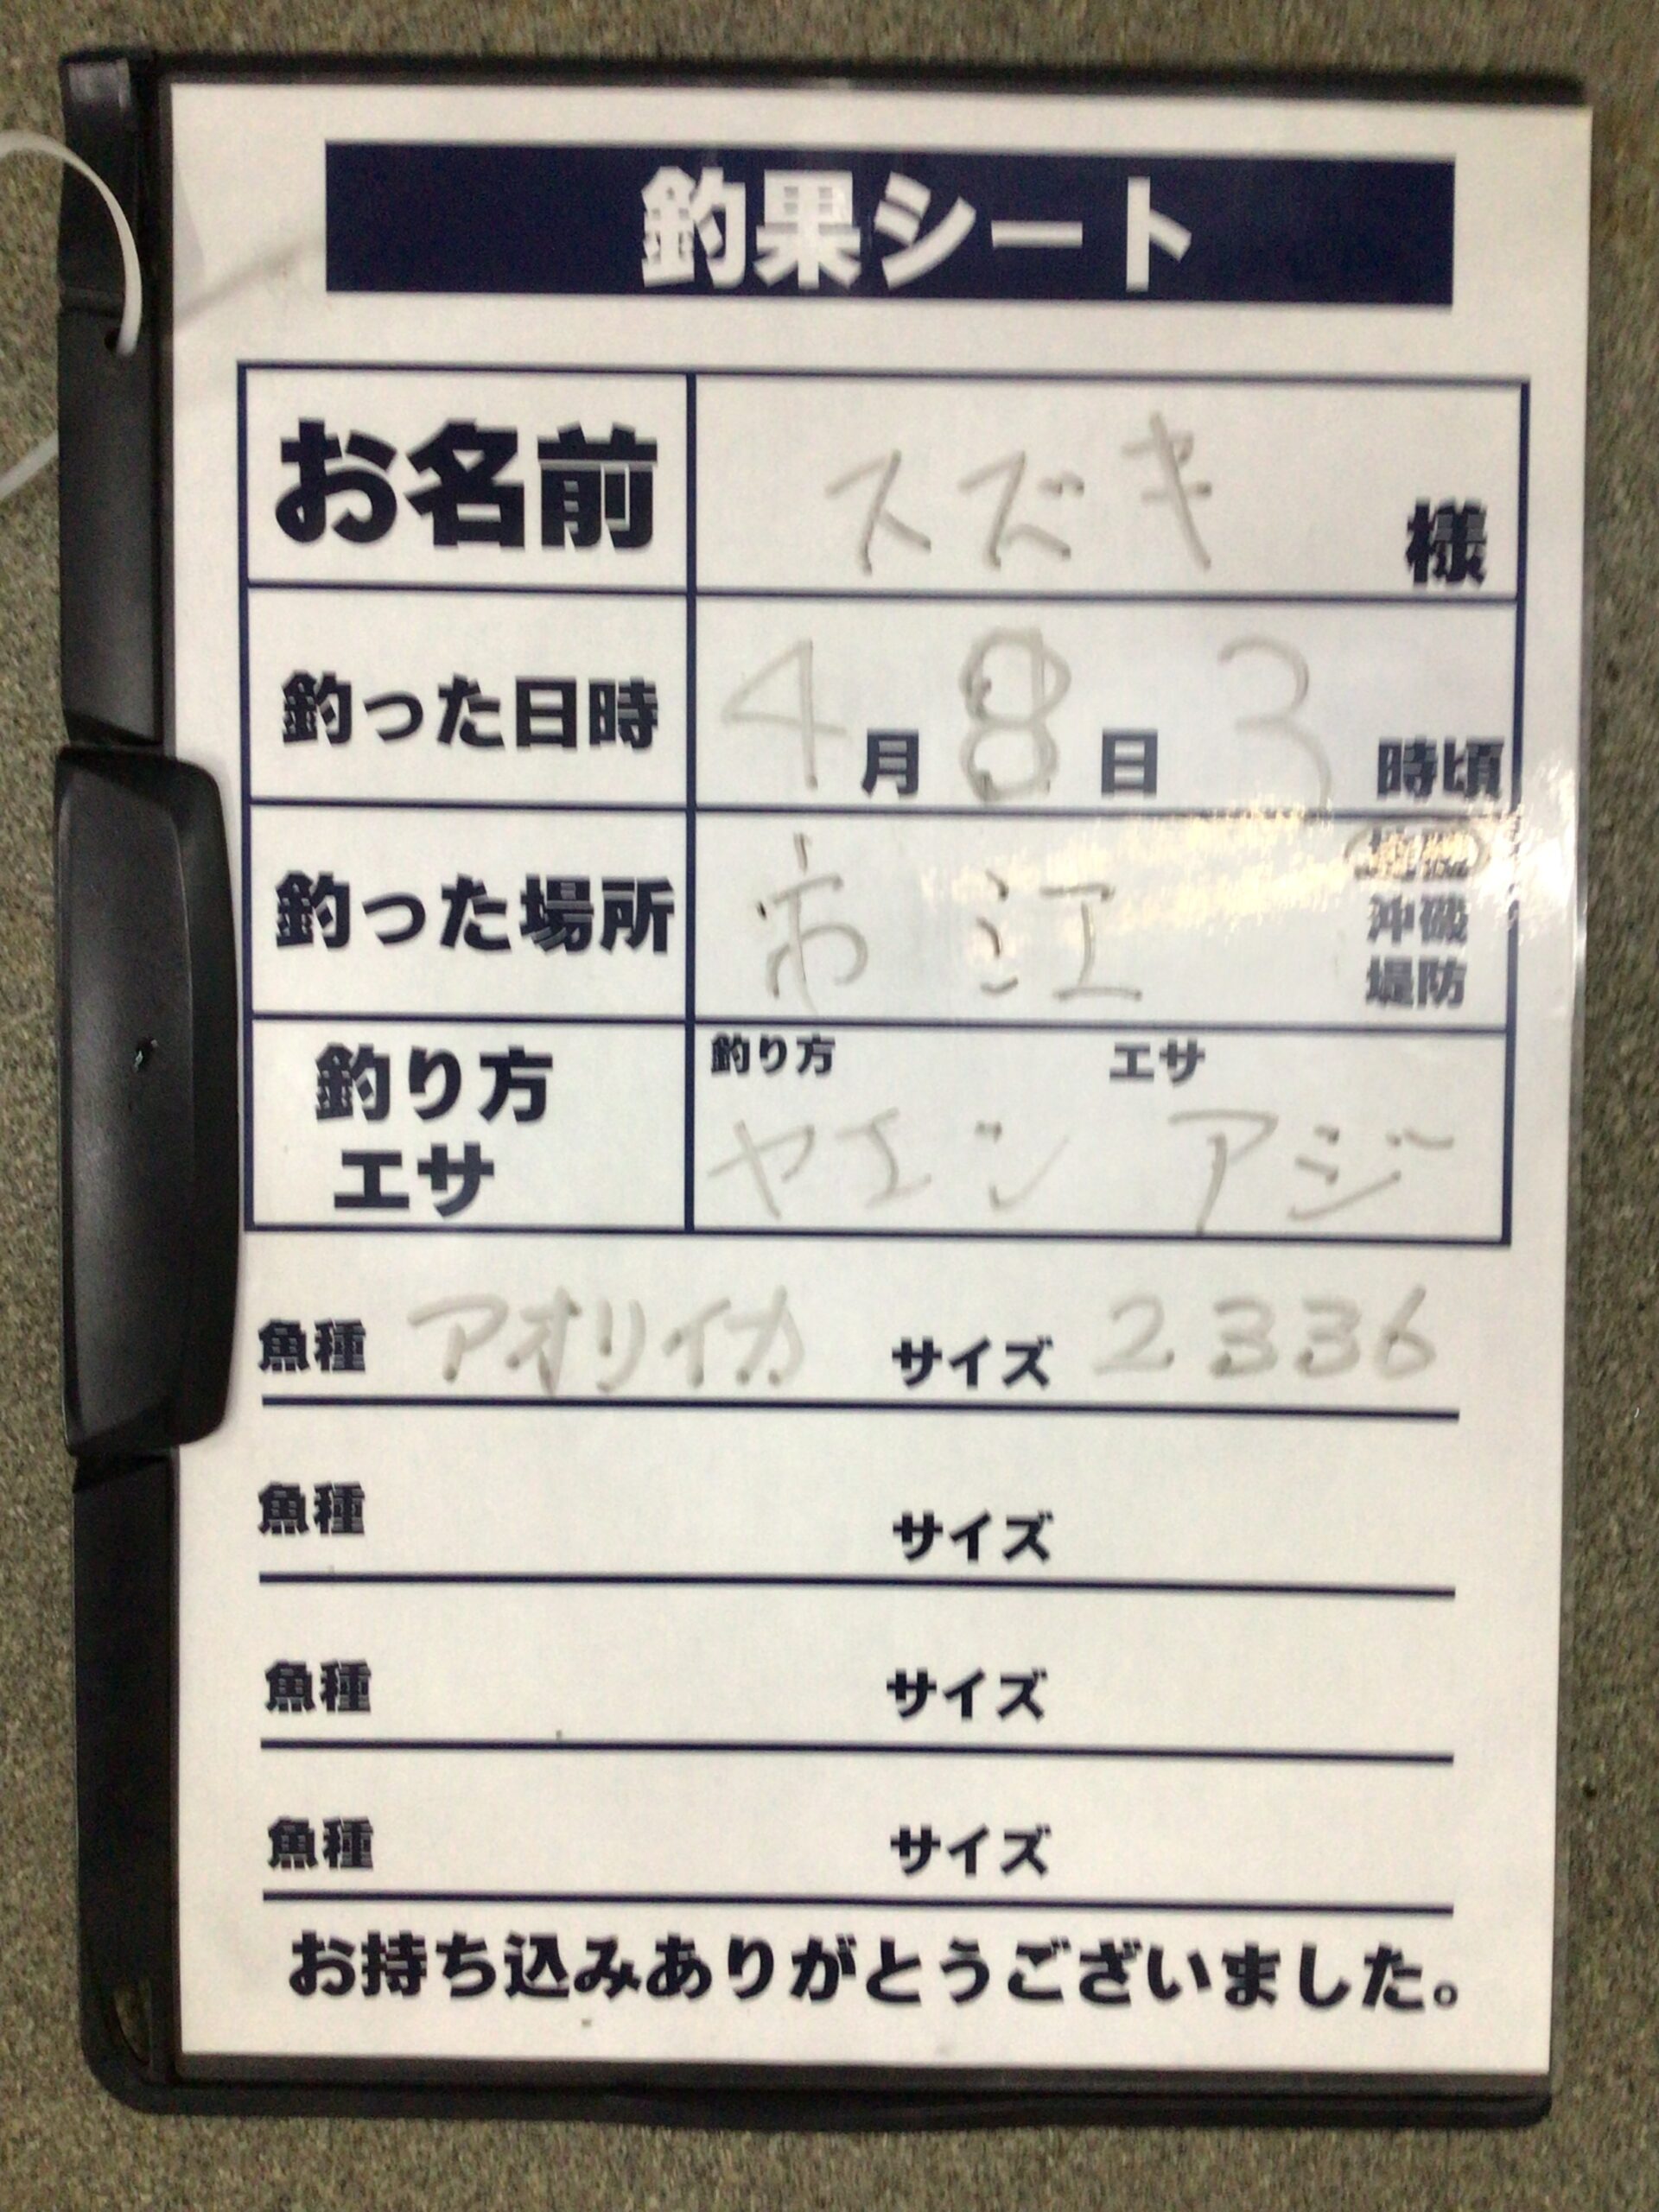 釣果シート
お名前 スズキ 様
釣った日時 4月 8日 3時頃
釣った場所 市江 地磯
沖磯
堤防
釣り方 エサ
釣り方 エサ
ヤエン アジ
魚種 アオリイカ サイズ 2336
魚種 サイズ
魚種 サイズ
魚種 サイズ
お持ち込みありがとうございました。